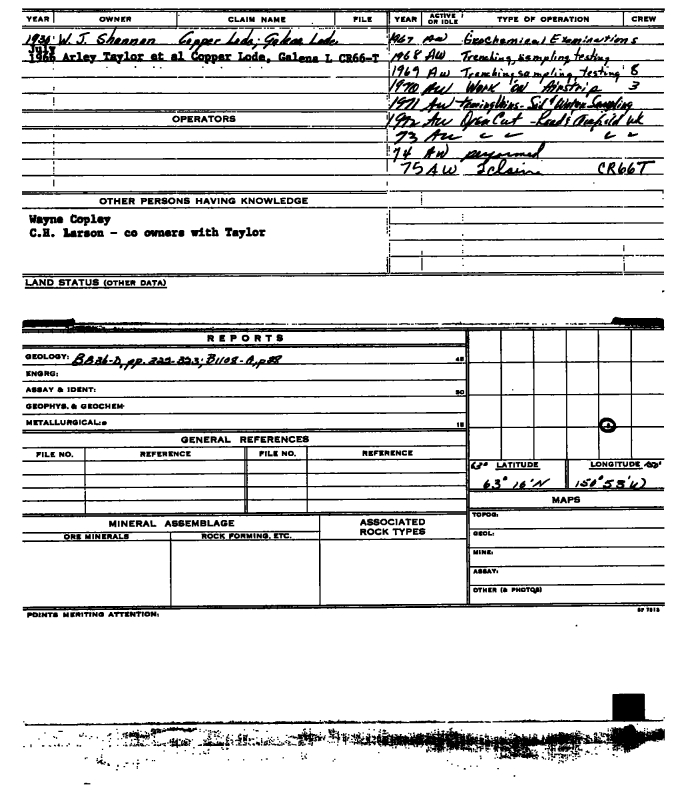 YEAR OWNER CLAIM NAME FILE YEAR ACTIVE OR IDLE TYPE OF OPERATION CREW
W. J. Shannon Copper Lode; Galena Lode.
July 1966 Arley Taylor et al Copper Lode, Galena L CR66-T
1967 AW Geochemical Examinations
1968 AW Trenching, sampling testing
1969 AW Trenching sampling testing 8
1970 AW Work on Airstrip 3
1971 AW Sampling
1972 AW Open Cut wk
73 AW " " " "
74 AW performed
75 AW claims CR66T
OPERATORS
OTHER PERSONS HAVING KNOWLEDGE
Wayne Copley
C.H. Larson - co owners with Taylor
LAND STATUS (OTHER DATA)
REPORTS
GEOLOGY: pp. 322-323; B1108-
ENGRG:
ASSAY & IDENT:
GEOPHYS. & GEOCHEM
METALLURGICAL:
GENERAL REFERENCES
FILE NO. REFERENCE FILE NO. REFERENCE
LATITUDE LONGITUDE
63° 16'N 150° 53'W
MAPS
TOPOG:
GEOL:
MINE:
ASSAY:
OTHER (& PHOTOS)
MINERAL ASSEMBLAGE ASSOCIATED ROCK TYPES
ORE MINERALS ROCK FORMING, ETC.
POINTS MERITING ATTENTION: